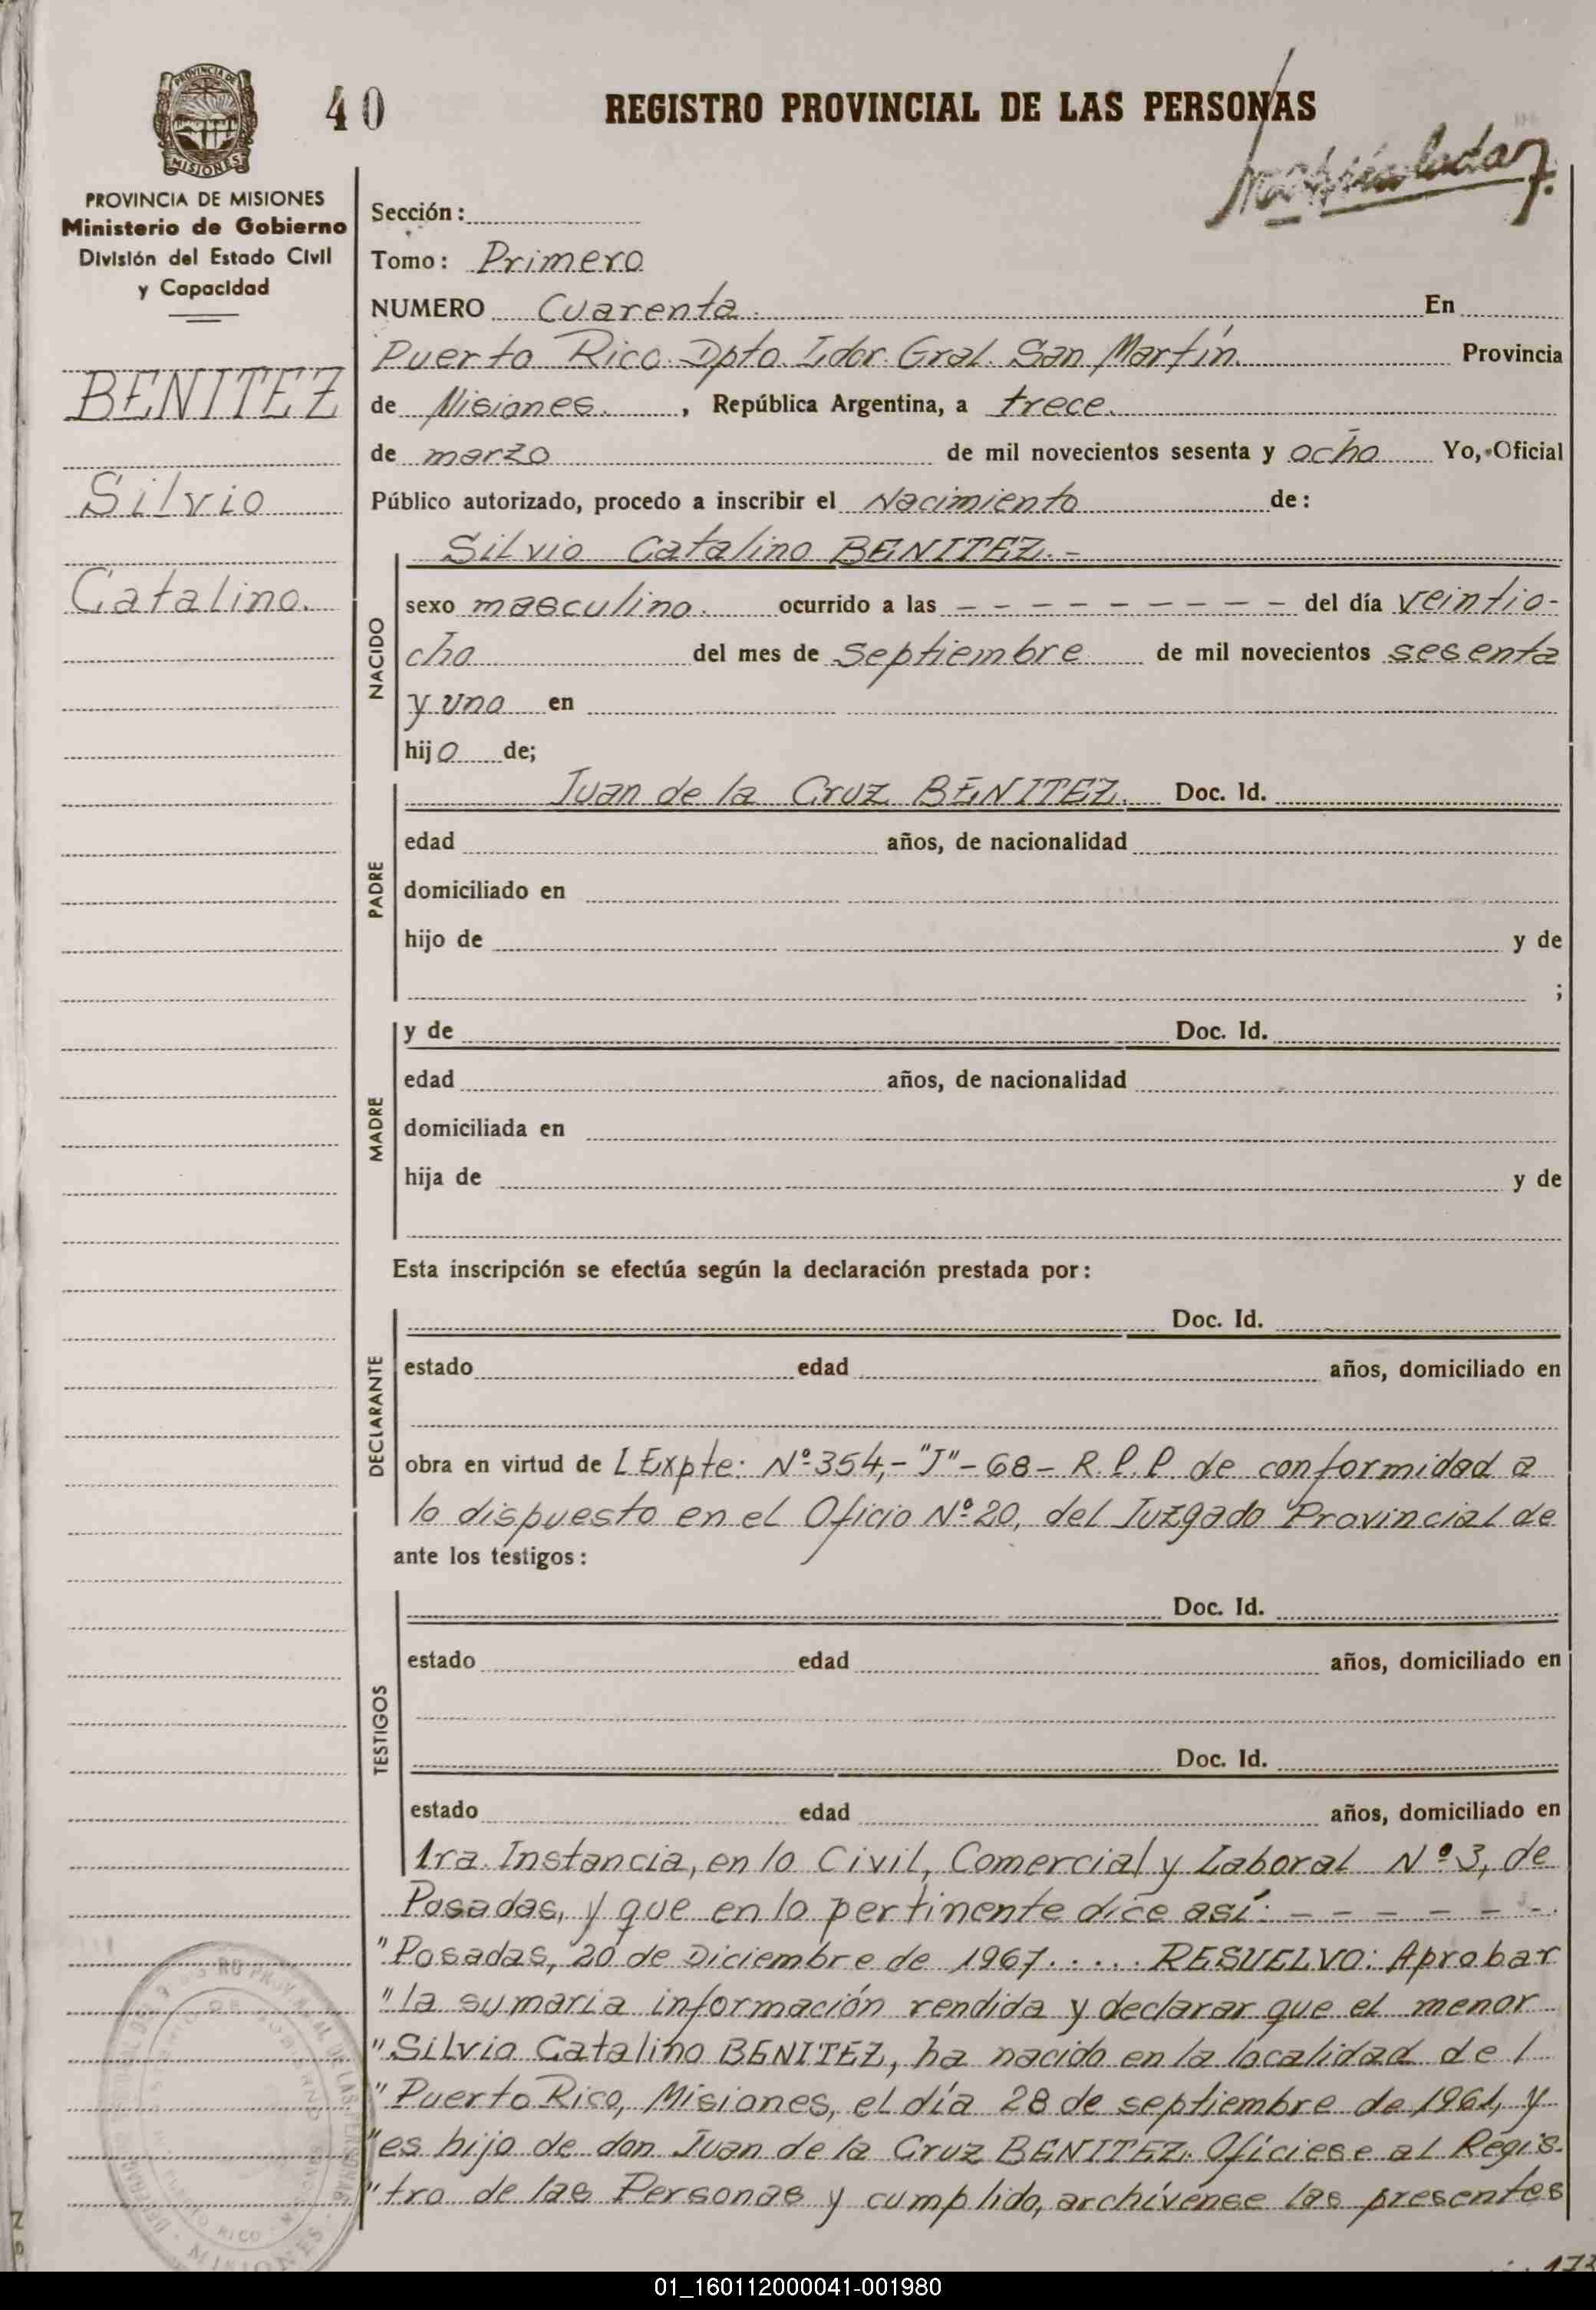 40
REGISTRO PROVINCIAL DE LAS PERSONAS
Matriculado
PROVINCIA DE
MISIONES
PROVINCIA DE MISIONES
Ministerio de Gobierno
División del Estado Civil
y Capacidad
BENITEZ
Silvio
Catalino.
Sección:
Tomo: Primero
NUMERO Cuarenta. En
Puerto Rico. Dpto. Ldor. Gral. San Martín. Provincia
de Misiones. , República Argentina, a trece.
de marzo de mil novecientos sesenta y ocho Yo, Oficial
Público autorizado, procedo a inscribir el Nacimiento de:
Silvio Catalino BENITEZ.-
NACIDO
sexo masculino. ocurrido a las - - - - - - - - - - del día veintio-
cho del mes de septiembre de mil novecientos sesenta
y uno en
hijo de;
PADRE
Juan de la Cruz BENITEZ. Doc. Id.
edad años, de nacionalidad
domiciliado en
hijo de y de
;
MADRE
y de Doc. Id.
edad años, de nacionalidad
domiciliada en
hija de y de
Esta inscripción se efectúa según la declaración prestada por:
DECLARANTE
Doc. Id.
estado edad años, domiciliado en
obra en virtud de l Expte: Nº 354,-"J"-68- R.P.P. de conformidad a
lo dispuesto en el Oficio Nº 20, del Juzgado Provincial de
ante los testigos:
TESTIGOS
Doc. Id.
estado edad años, domiciliado en
Doc. Id.
estado edad años, domiciliado en
1ra. Instancia, en lo Civil, Comercial y Laboral Nº 3, de
Posadas, y que en lo pertinente dice así: - - - - - -
"Posadas, 20 de Diciembre de 1967. .... RESUELVO: Aprobar
"la sumaria información rendida y declarar que el menor
"Silvio Catalino BENITEZ, ha nacido en la localidad de l
"Puerto Rico, Misiones, el día 28 de septiembre de 1961, y
"es hijo de don Juan de la Cruz BENITEZ. Ofíciese al Regis-
"tro de las Personas y cumplido, archívense las presentes
PUERTO RICO
MISIONES
01_160112000041-001980